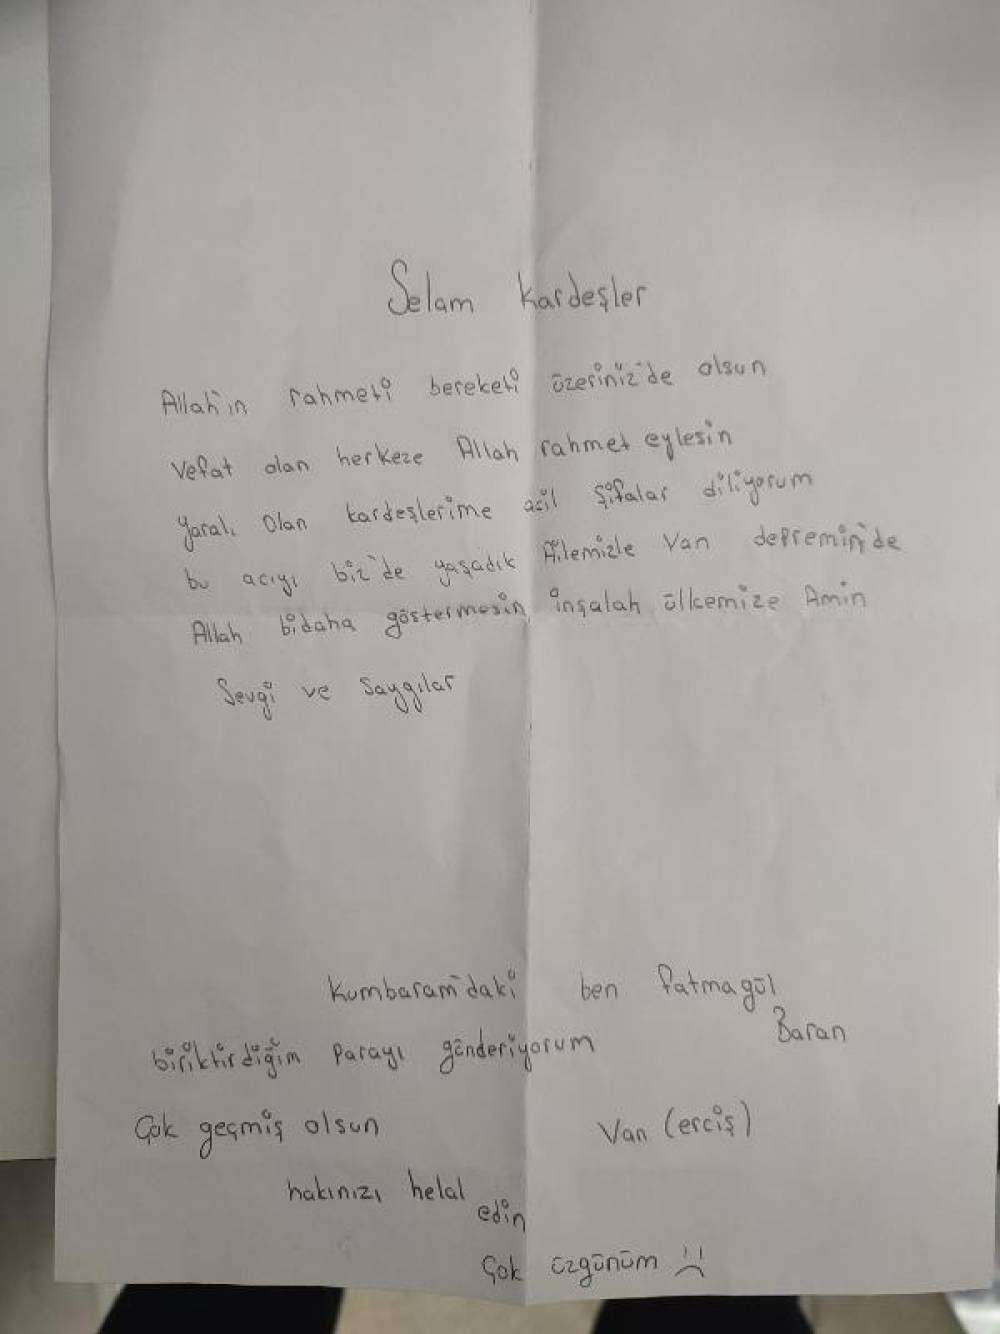 Selam kardeşler
Allah'ın rahmeti bereketi üzeriniz'de olsun
Vefat olan herkeze Allah rahmet eylesin
Yaralı olan kardeşlerime acil şifalar diliyorum
bu acıyı biz'de yaşadık Ailemizle Van depremin'de
Allah bidaha göstermesin inşalah ülkemize Amin
Sevgi ve Saygılar
Kumbaram'daki ben fatmagül
Baran
biriktirdiğim parayı gönderiyorum
Çok geçmiş olsun Van (erciş)
hakınızı helal
edin
Çok üzgünüm :(